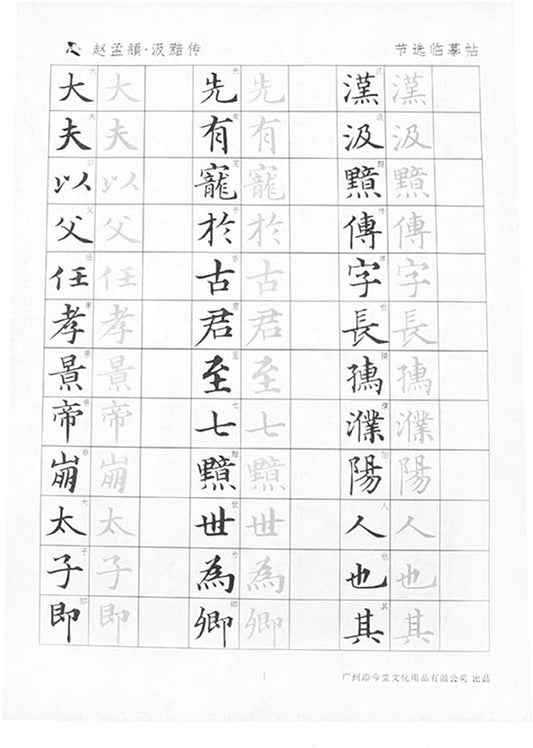 赵孟頫·汲黯传
节选临摹帖
漢汲黯傳字長孺濮陽人也其
漢汲黯傳字長孺濮陽人也其
先有寵於古君至七黯世為卿
先有寵於古君至七黯世為卿
大夫以父任孝景帝崩太子即
大夫以父任孝景帝崩太子即
1
广州添今堂文化用品有限公司 出品